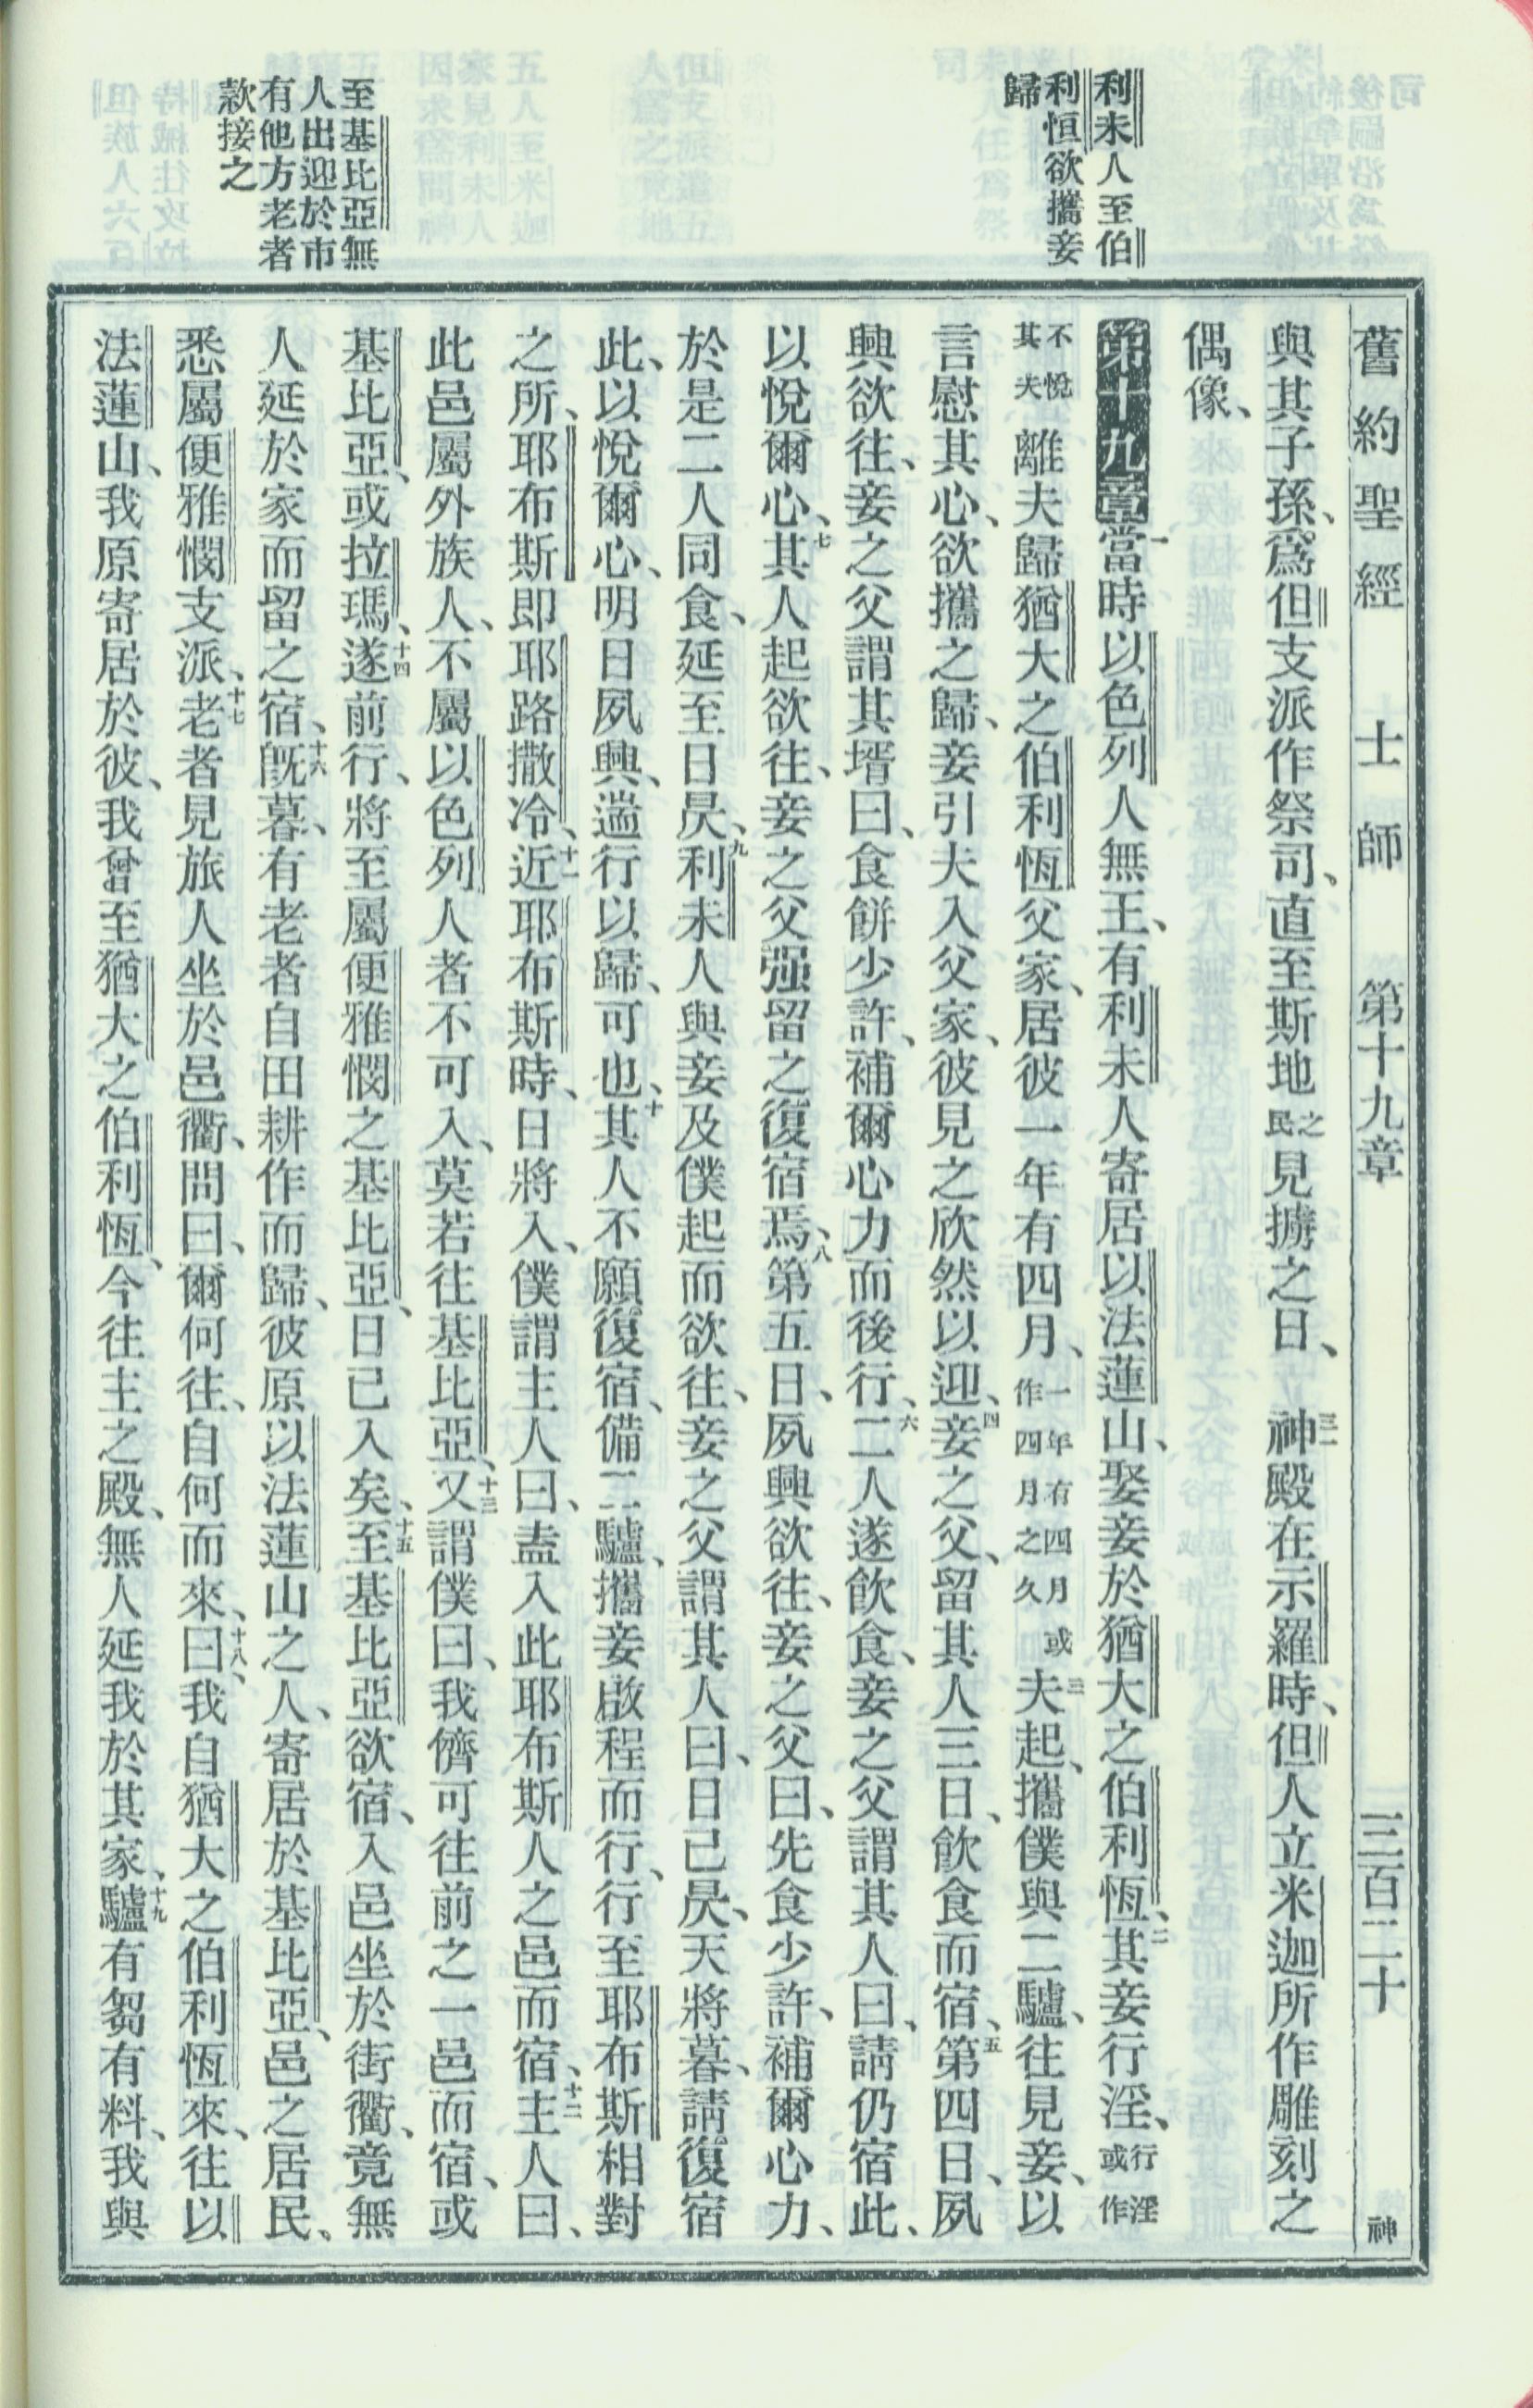 舊約聖經 士師 第十九章 三百二十 神
利未人至伯
利恒欲攜妾
歸
至基比亞無
人出迎於市
有他方老者
款接之
與其子孫、爲但支派作祭司、直至斯地之民見擄之日、三一神殿在示羅時、但人立米迦所作雕刻之
偶像、
第十九章一當時以色列人無王、有利未人寄居以法蓮山、娶妾於猶大之伯利恆、二其妾行淫、行淫或作
不悅其夫離夫歸猶大之伯利恆父家、居彼一年有四月、一年有四月或作四月之久三夫起、攜僕與二驢、往見妾、以
言慰其心、欲攜之歸、妾引夫入父家、彼見之欣然以迎、四妾之父、留其人三日、飲食而宿、五第四日、夙
興欲往、妾之父謂其壻曰、食餅少許、補爾心力而後行、六二人遂飲食、妾之父謂其人曰、請仍宿此、
以悅爾心、七其人起欲往、妾之父强留之、復宿焉、八第五日、夙興欲往、妾之父曰、先食少許、補爾心力、
於是二人同食、延至日昃、九利未人與妾及僕起而欲往、妾之父謂其人曰、日已昃、天將暮、請復宿
此、以悅爾心、明日夙興、遄行以歸、可也、十其人不願復宿、備二驢、攜妾啟程而行、行至耶布斯相對
之所、耶布斯即耶路撒冷、十一近耶布斯時、日將入、僕謂主人曰、盍入此耶布斯人之邑而宿、十二主人曰、
此邑屬外族人、不屬以色列人者不可入、莫若往基比亞、十三又謂僕曰、我儕可往前之一邑而宿、或
基比亞、或拉瑪、十四遂前行、將至屬便雅憫之基比亞、日已入矣、十五至基比亞欲宿、入邑坐於街衢、竟無
人延於家而留之宿、十六旣暮、有老者自田耕作而歸、彼原以法蓮山之人、寄居於基比亞、邑之居民、
悉屬便雅憫支派、十七老者見旅人坐於邑衢、問曰、爾何往、自何而來、十八曰、我自猶大之伯利恆來、往以
法蓮山、我原寄居於彼、我曾至猶大之伯利恆、今往主之殿、無人延我於其家、十九驢有芻有料、我與